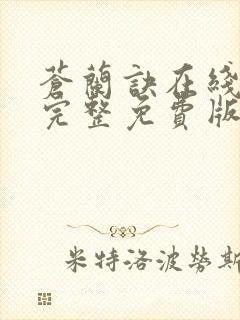 蒼蘭訣在綫
完整免費版
米特洛波勞斯